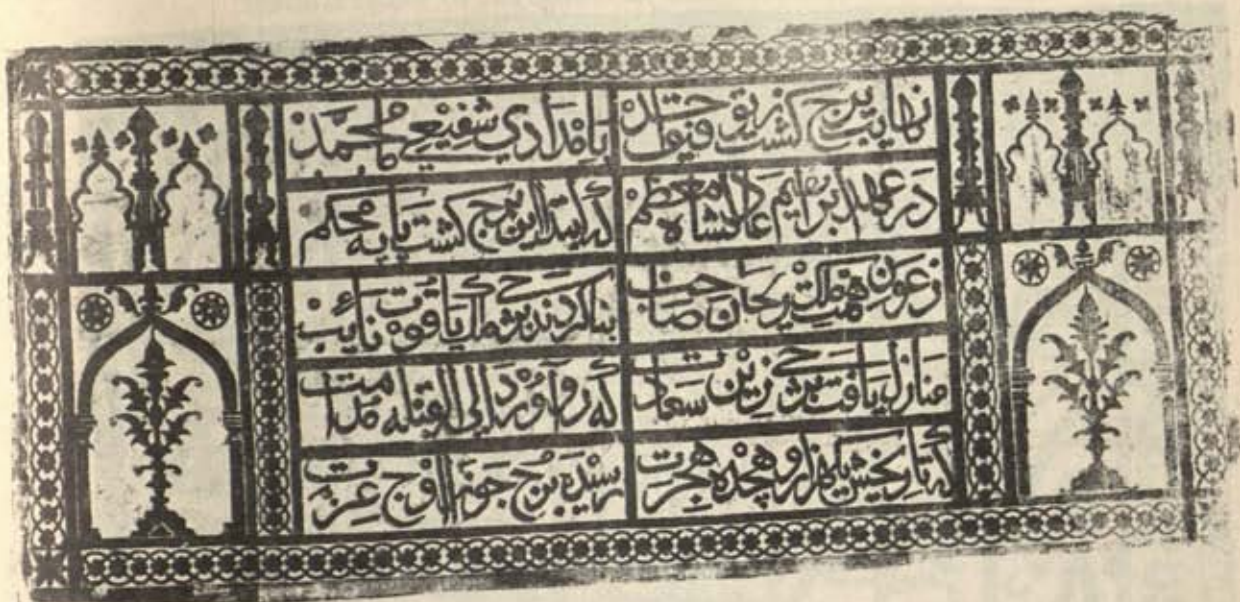 نهایت برج گشت ز توفیق احمد بامدادی شفیعی ما محمد
در عهد ابراهیم عادلشاه معظم که ابتدا این برج گشت پایه محکم
ز عون همت ملک ریحان صاحب بنا کردند برجی ملک یاقوت نائب
منازل یافت برجی زین سعادت که رو آورد الی القبله مدامت
که تاریخش یکهزار و هجده هجرت رسیده برج جوزا اوج عزت